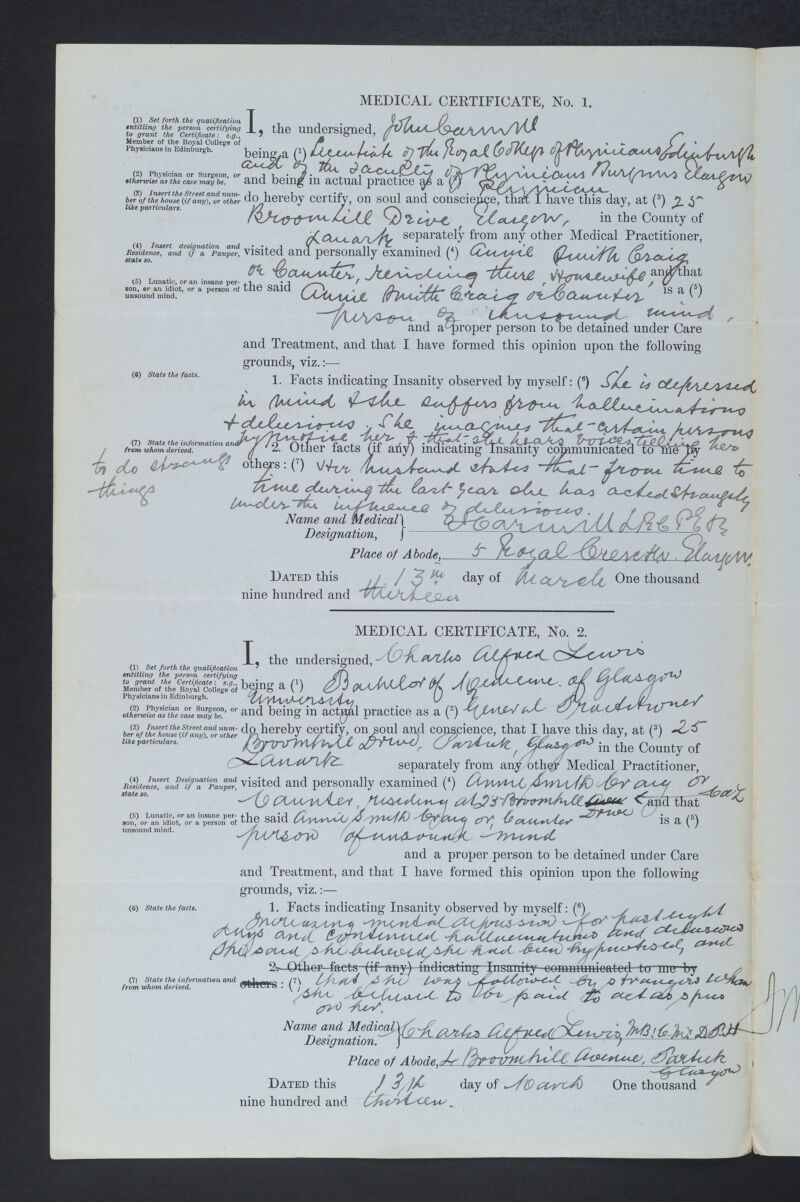 MEDICAL CERTIFICATE, No. 1.
(1) Set forth the qualification
entitling the person certifying
to grant the Certificate: e.g.,
Member of the Royal College of
Physicians in Edinburgh.
I, the undersigned, John Carmill
being a (1) Licentiate of the Royal College of Physicians Edinburgh
and of the Faculty of Physicians Surgeons Glasgow
(2) Physician or Surgeon, or
otherwise as the case may be.
and being in actual practice as a (2) Physician
(3) Insert the Street and num-
ber of the house (if any), or other
like particulars.
do hereby certify, on soul and conscience, that I have this day, at (3) 25
Broomhill Drive, Glasgow, in the County of
Lanark separately from any other Medical Practitioner,
(4) Insert designation and
Residence, and if a Pauper,
state so.
visited and personally examined (4) Annie Smith Craig
or Caunter, residing there, Housewife, and that
(5) Lunatic, or an insane per-
son, or an idiot, or a person of
unsound mind.
the said Annie Smith Craig or Caunter is a (5)
person of unsound mind,
and a proper person to be detained under Care
and Treatment, and that I have formed this opinion upon the following
grounds, viz.:—
(6) State the facts.
1. Facts indicating Insanity observed by myself: (6) She is depressed
in mind & she suffers from hallucinations
& delusions. She imagines that certain persons
hypnotise her & that she hears voices telling her
to do strange
things
(7) State the information and
from whom derived.
2. Other facts (if any) indicating Insanity communicated to me by
others: (7) Her husband states that from time to
time during the last year she has acted strangely
under the influence of delusions.
Name and Medical
Designation, J Carmill L.R.C.P.E
Place of Abode, 5 Royal Crescent Glasgow.
DATED this 13th day of March One thousand
nine hundred and thirteen
MEDICAL CERTIFICATE, No. 2.
(1) Set forth the qualification
entitling the person certifying
to grant the Certificate: e.g.,
Member of the Royal College of
Physicians in Edinburgh.
I, the undersigned, Charles Alfred Lewis
being a (1) Bachelor of Medicine of Glasgow
University
(2) Physician or Surgeon, or
otherwise as the case may be.
and being in actual practice as a (2) General Practitioner
(3) Insert the Street and num-
ber of the house (if any), or other
like particulars.
do hereby certify, on soul and conscience, that I have this day, at (3) 25
Broomhill Drive, Partick, Glasgow in the County of
Lanark separately from any other Medical Practitioner,
(4) Insert Designation and
Residence, and if a Pauper,
state so.
visited and personally examined (4) Annie Smith Craig or
Caunter, residing at 25 Broomhill Drive and that
CaL
(5) Lunatic, or an insane per-
son, or an idiot, or a person of
unsound mind.
the said Annie Smith Craig or Caunter is a (5)
person of unsound mind
and a proper person to be detained under Care
and Treatment, and that I have formed this opinion upon the following
grounds, viz.:—
(6) State the facts.
1. Facts indicating Insanity observed by myself: (6)
Increasing mental depression for past eight
days and continued hallucinations and delusions
She said she believed she had been hypnotised, and
2. Other facts (if any) indicating Insanity communicated to me by
(7) State the information and
from whom derived.
others: (7) that she was followed by strangers whom
she believed to be paid to act as spies
on her.
Name and Medical
Designation. Charles Alfred Lewis, M.B; C.M; D.P.H
Place of Abode, 4 Broomhill Avenue, Partick
Glasgow
DATED this 13th day of March One thousand
nine hundred and thirteen.